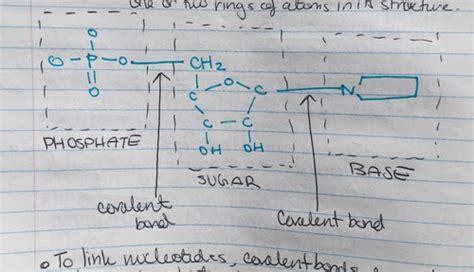 one or two rings of atoms in it structure.
O
O-P-O
O
CH2
C O C
C-C
OH OH
N
PHOSPHATE
SUGAR
BASE
covalent bond
Covalent bond
• To link nucleotides, covalent bonds